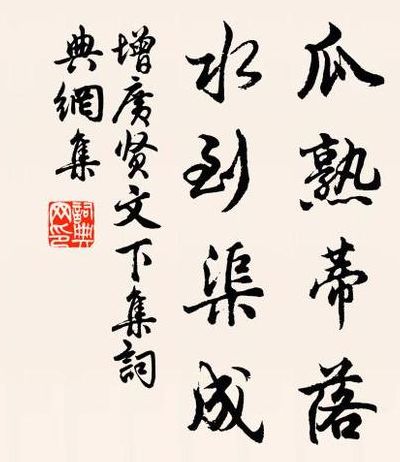 瓜熟蒂落
水到渠成
增广贤文下集詞
典網集
詞典
网印